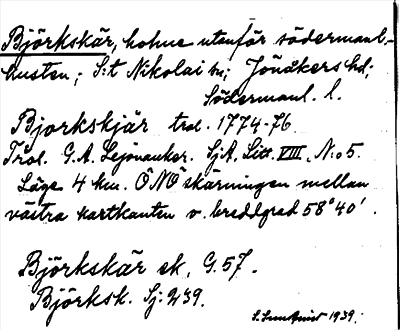 Björkskär, holme utanför södermanl.-
kusten; S:t Nikolai sn; Jönåkers hd;
Södermanl. l.
Bjorkskjär trol. 1774-76
Trol. G.A. Lejonanker. SjA, Litt. VIII, N:o 5.
Läge 4 km. ÖNÖ skärningen mellan
västra kartkanten o. breddgrad 58°40'.
Björkskär ek. G. 57.
Björksk. Sj: 239.
1939.